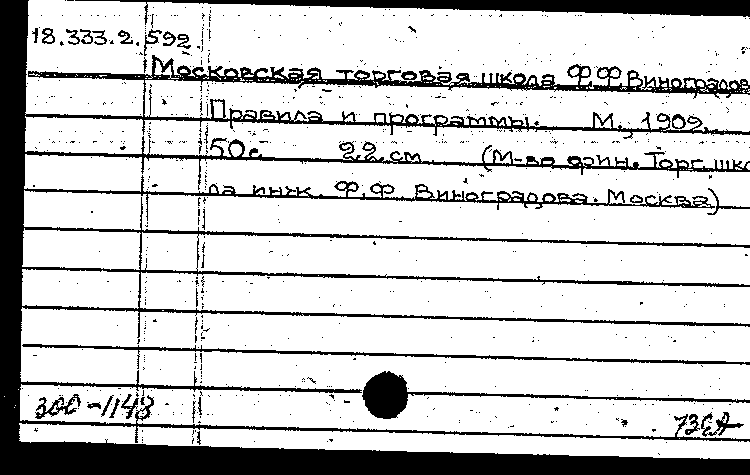 18.333.2.592.
Московская торговая школа Ф.Ф.Виноградова
Правила и программы. М., 1909.
50с 22 см (М-во фин. Торг. шко
ла инж. Ф.Ф. Виноградова. Москва)
300-1148